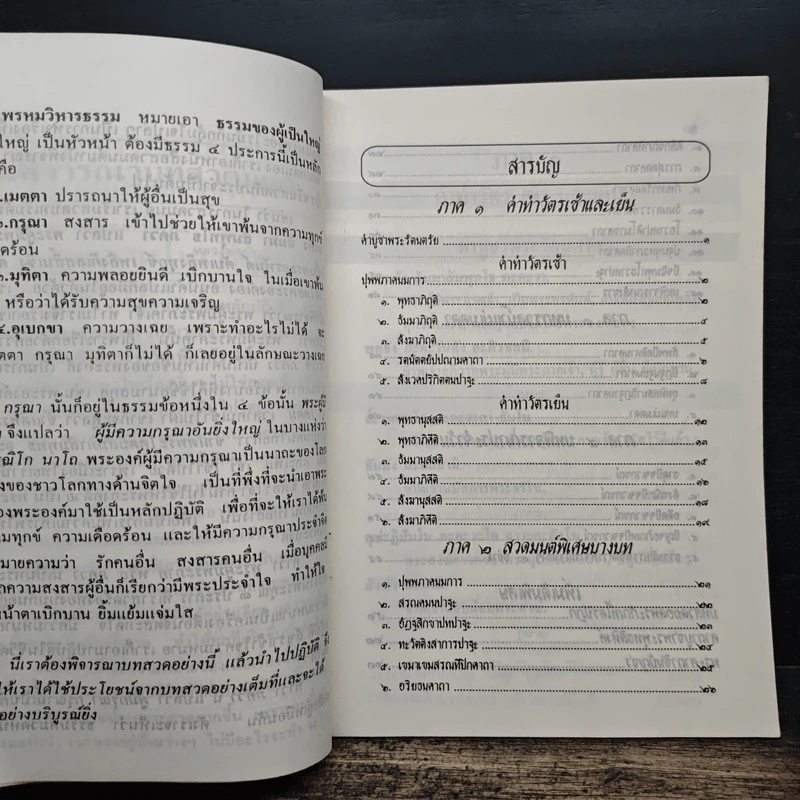 พรหมวิหารธรรม หมายเอา ธรรมของผู้เป็นใหญ่
ใหญ่ เป็นหัวหน้า ต้องมีธรรม ๔ ประการนี้เป็นหลัก
คือ
.เมตตา ปรารถนาให้ผู้อื่นเป็นสุข
๒.กรุณา สงสาร เข้าไปช่วยให้เขาพ้นจากความทุกข์
ดร้อน
.มุทิตา ความพลอยยินดี เบิกบานใจ ในเมื่อเขาพ้น
หรือว่าได้รับความสุขความเจริญ
๔.อุเบกขา ความวางเฉย เพราะทำอะไรไม่ได้ จะ
ตตา กรุณา มุทิตาก็ไม่ได้ ก็เลยอยู่ในลักษณะวางเฉย
กรุณา นั้นก็อยู่ในธรรมข้อหนึ่งใน ๔ ข้อนั้น พระผู้มี
จึงแปลว่า ผู้มีความกรุณาอันยิ่งใหญ่ ในบางแห่งว่า
ณิโก นาโถ พระองค์ผู้มีความกรุณาเป็นนาถะของโลก
งของชาวโลกทางด้านจิตใจ เป็นที่พึ่งที่จะนำเอาพระ
องพระองค์มาใช้เป็นหลักปฏิบัติ เพื่อที่จะให้เราได้พ้น
มทุกข์ ความเดือดร้อน และให้มีความกรุณาประจำจิต
มายความว่า รักคนอื่น สงสารคนอื่น เมื่อบุคคลมี
กความสงสารผู้อื่นก็เรียกว่ามีพระประจำใจ ทำให้ใจ
น้าตาเบิกบาน ยิ้มแย้มแจ่มใส
นี่เราต้องพิจารณาบทสวดอย่างนี้ แล้วนำไปปฏิบัติ จึง
ให้เราได้ใช้ประโยชน์จากบทสวดอย่างเต็มที่และจะได้
อย่างบริบูรณ์ยิ่ง
สารบัญ
ภาค ๑ คำทำวัตรเช้าและเย็น
คำบูชาพระรัตนตรัย ๑
คำทำวัตรเช้า
ปุพพภาคนมการ ๒
๑. พุทธาภิถุติ ๒
๒. ธัมมาภิถุติ ๔
๓. สังฆาภิถุติ ๕
๔. รตนัตตยัปปณามคาถา ๖
๕. สังเวคปริกิตตนปาฐะ ๘
คำทำวัตรเย็น
๑. พุทธานุสสติ ๑๒
๒. พุทธาภิคีติ ๑๓
๓. ธัมมานุสสติ ๑๕
๔. ธัมมาภิคีติ ๑๖
๕. สังฆานุสสติ ๑๘
๖. สังฆาภิคีติ ๑๙
ภาค ๒ สวดมนต์พิเศษบางบท
๑. ปุพพภาคนมการ ๒๑
๒. สรณคมนปาฐะ ๒๒
๓. อัฏฐสิกขาปทปาฐะ ๒๓
๔. ทะวัตติงสาการปาฐะ ๒๔
๕. เขมาเขมสรณทีปิกคาถา ๒๕
๖. อริยธนคาถา ๒๖